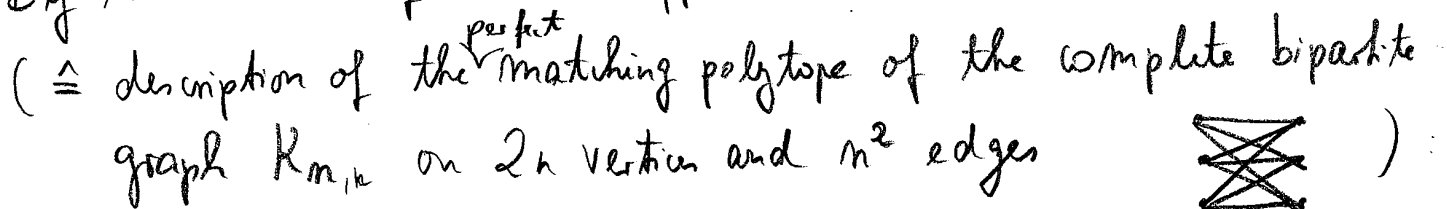 ( ≙ description of the perfect matching polytope of the complete bipartite
graph Kn,n on 2n vertices and n² edges ) :